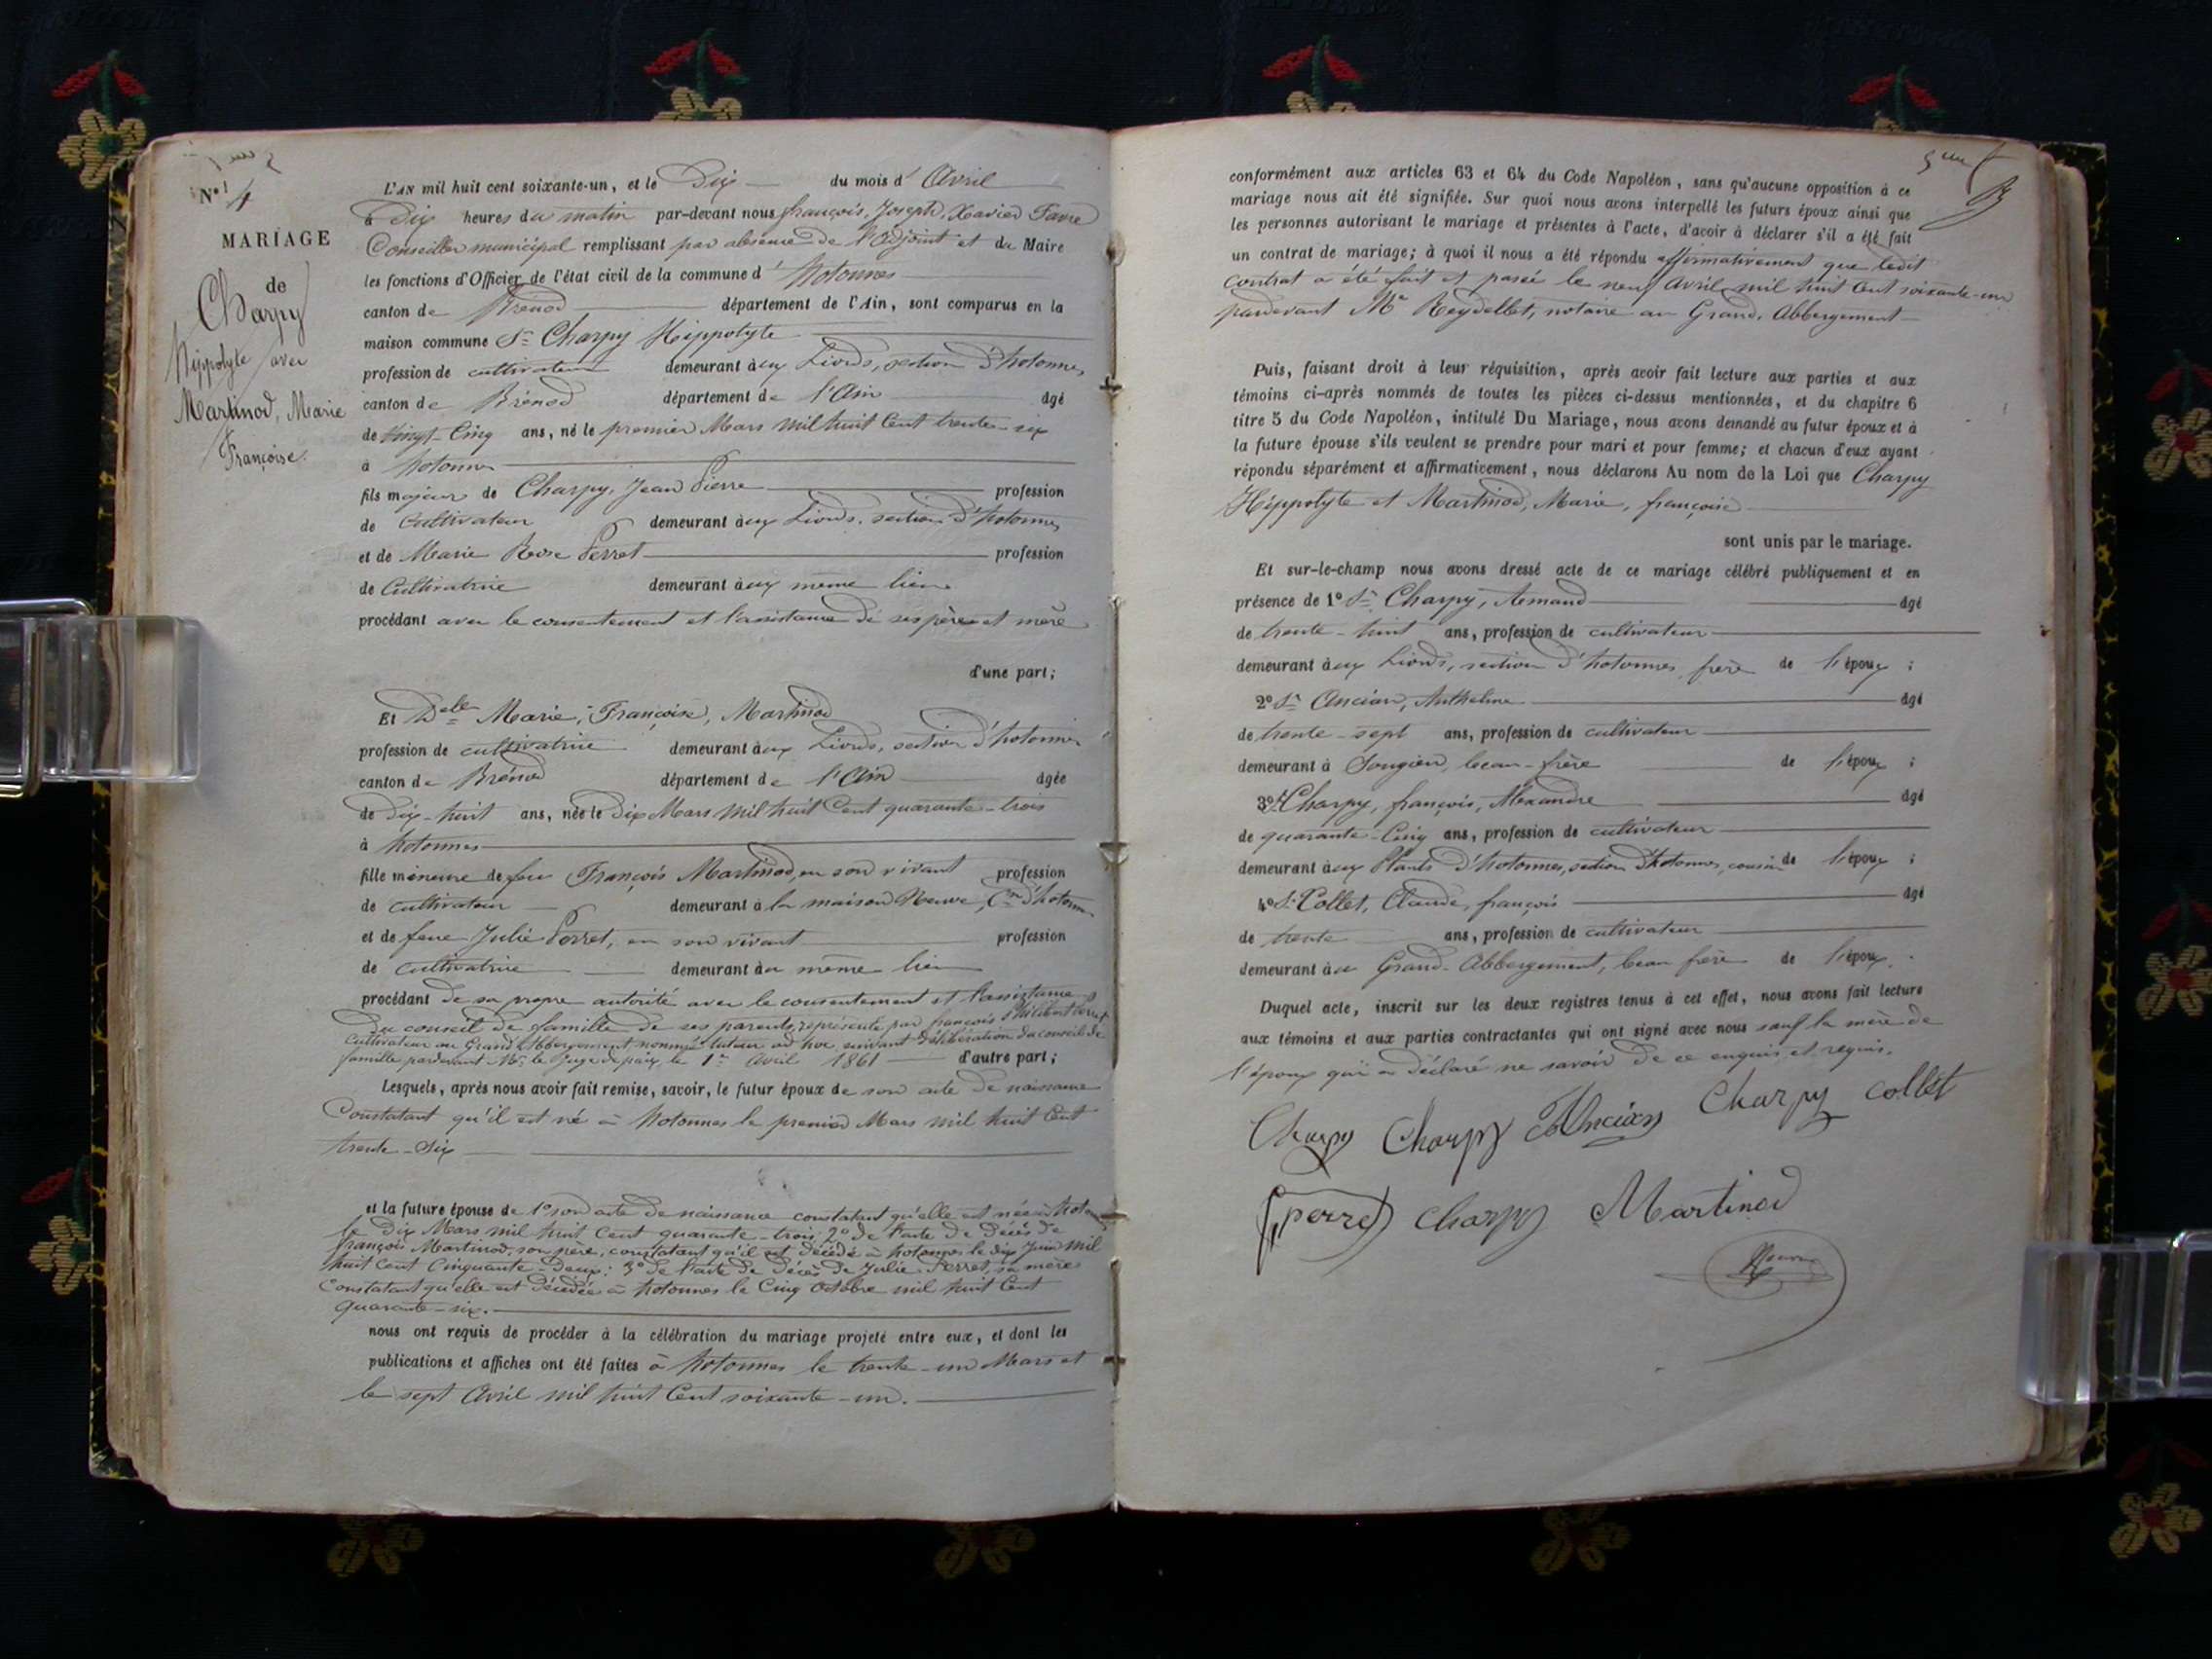 N° 4
MARIAGE
de
Charpy
Hippolyte avec
Martinod, Marie
Françoise.
L'AN mil huit cent soixante-un, et le Dix du mois d' Avril
à Dix heures du matin par-devant nous françois, Joseph, Xavier Favre
Conseiller municipal remplissant par absence de l'adjoint et du Maire
les fonctions d'Officier de l'état civil de la commune d' hotonnes
canton de Brénod département de l'Ain, sont comparus en la
maison commune Sr Charpy Hippolyte
profession de cultivateur demeurant aux Liords, section d'hotonnes
canton de Brénod département de l'Ain âgé
de vingt-Cinq ans, né le premier Mars mil huit Cent trente-six
à hotonnes
fils majeur de Charpy, Jean Pierre profession
de Cultivateur demeurant aux Liords, section d'hotonnes
et de Marie Rose Perret profession
de Cultivatrice demeurant aux même lieu
procédant avec le consentement et l'assistance de ses père et mère
d'une part;
Et Delle Marie, Françoise, Martinod
profession de cultivatrice demeurant aux Liords, section d'hotonnes
canton de Brénod département de l'Ain âgée
de Dix-huit ans, née le Dix Mars mil huit Cent quarante-trois
à hotonnes
fille mineure de feu François Martinod, en son vivant profession
de cultivateur demeurant à la maison Neuve, Cne d'hotonnes
et de feue Julie Perret, en son vivant profession
de cultivatrice demeurant au même lieu
procédant de sa propre autorité avec le consentement et l'assistance
du conseil de famille de ses parents, représenté par françois Philibert Perret
cultivateur au Grand Abbergement nommé tuteur ad hoc suivant délibération du conseil de
famille pardevant Mr le Juge de paix le 1er Avril 1861 d'autre part;
Lesquels, après nous avoir fait remise, savoir, le futur époux de son acte de naissance
Constatant qu'il est né à hotonnes le premier Mars mil huit Cent
trente-Six
et la future épouse de 1° son acte de naissance constatant qu'elle est née à hotonnes
le Dix Mars mil huit Cent quarante-trois, 2° de l'acte de Décès de
françois Martinod, son père, constatant qu'il est décédé à hotonnes le dix Juin mil
huit Cent Cinquante-Deux; 3° de l'acte de Décès de Julie Perret, sa mère
Constatant qu'elle est décédée à hotonnes le Cinq Octobre mil huit Cent
quarante-six.
nous ont requis de procéder à la célébration du mariage projeté entre eux, et dont les
publications et affiches ont été faites à hotonnes le trente-un Mars et
le sept Avril mil huit Cent soixante-un.
conformément aux articles 63 et 64 du Code Napoléon, sans qu'aucune opposition à ce
mariage nous ait été signifiée. Sur quoi nous avons interpellé les futurs époux ainsi que
les personnes autorisant le mariage et présentes à l'acte, d'avoir à déclarer s'il a été fait
un contrat de mariage; à quoi il nous a été répondu affirmativement que ledit
Contrat a été fait et passé le neuf Avril mil huit Cent soixante-un
pardevant Me Reydellet, notaire au Grand Abbergement
Puis, faisant droit à leur réquisition, après avoir fait lecture aux parties et aux
témoins ci-après nommés de toutes les pièces ci-dessus mentionnées, et du chapitre 6
titre 5 du Code Napoléon, intitulé Du Mariage, nous avons demandé au futur époux et à
la future épouse s'ils veulent se prendre pour mari et pour femme; et chacun d'eux ayant
répondu séparément et affirmativement, nous déclarons Au nom de la Loi que Charpy
Hippolyte et Martinod, Marie, françoise
sont unis par le mariage.
Et sur-le-champ nous avons dressé acte de ce mariage célébré publiquement et en
présence de 1° Sr Charpy, Armand âgé
de trente-huit ans, profession de cultivateur
demeurant aux Liords, section d'hotonnes, frère de l'époux;
2° Sr Ancian, Anthelme âgé
de trente-sept ans, profession de cultivateur
demeurant à Songieu, beau-frère de l'époux;
3° Sr Charpy, françois, Alexandre âgé
de quarante-Cinq ans, profession de cultivateur
demeurant aux Plans d'hotonnes, section d'hotonnes, cousin de l'époux;
4° Sr Collet, Claude, françois âgé
de trente ans, profession de cultivateur
demeurant au Grand-Abbergement, beau frère de l'époux.
Duquel acte, inscrit sur les deux registres tenus à cet effet, nous avons fait lecture
aux témoins et aux parties contractantes qui ont signé avec nous sauf la mère de
l'époux qui a déclaré ne savoir de ce enquis et requis.
Charpy Charpy Ancian Charpy collet
perret charpy Martinod